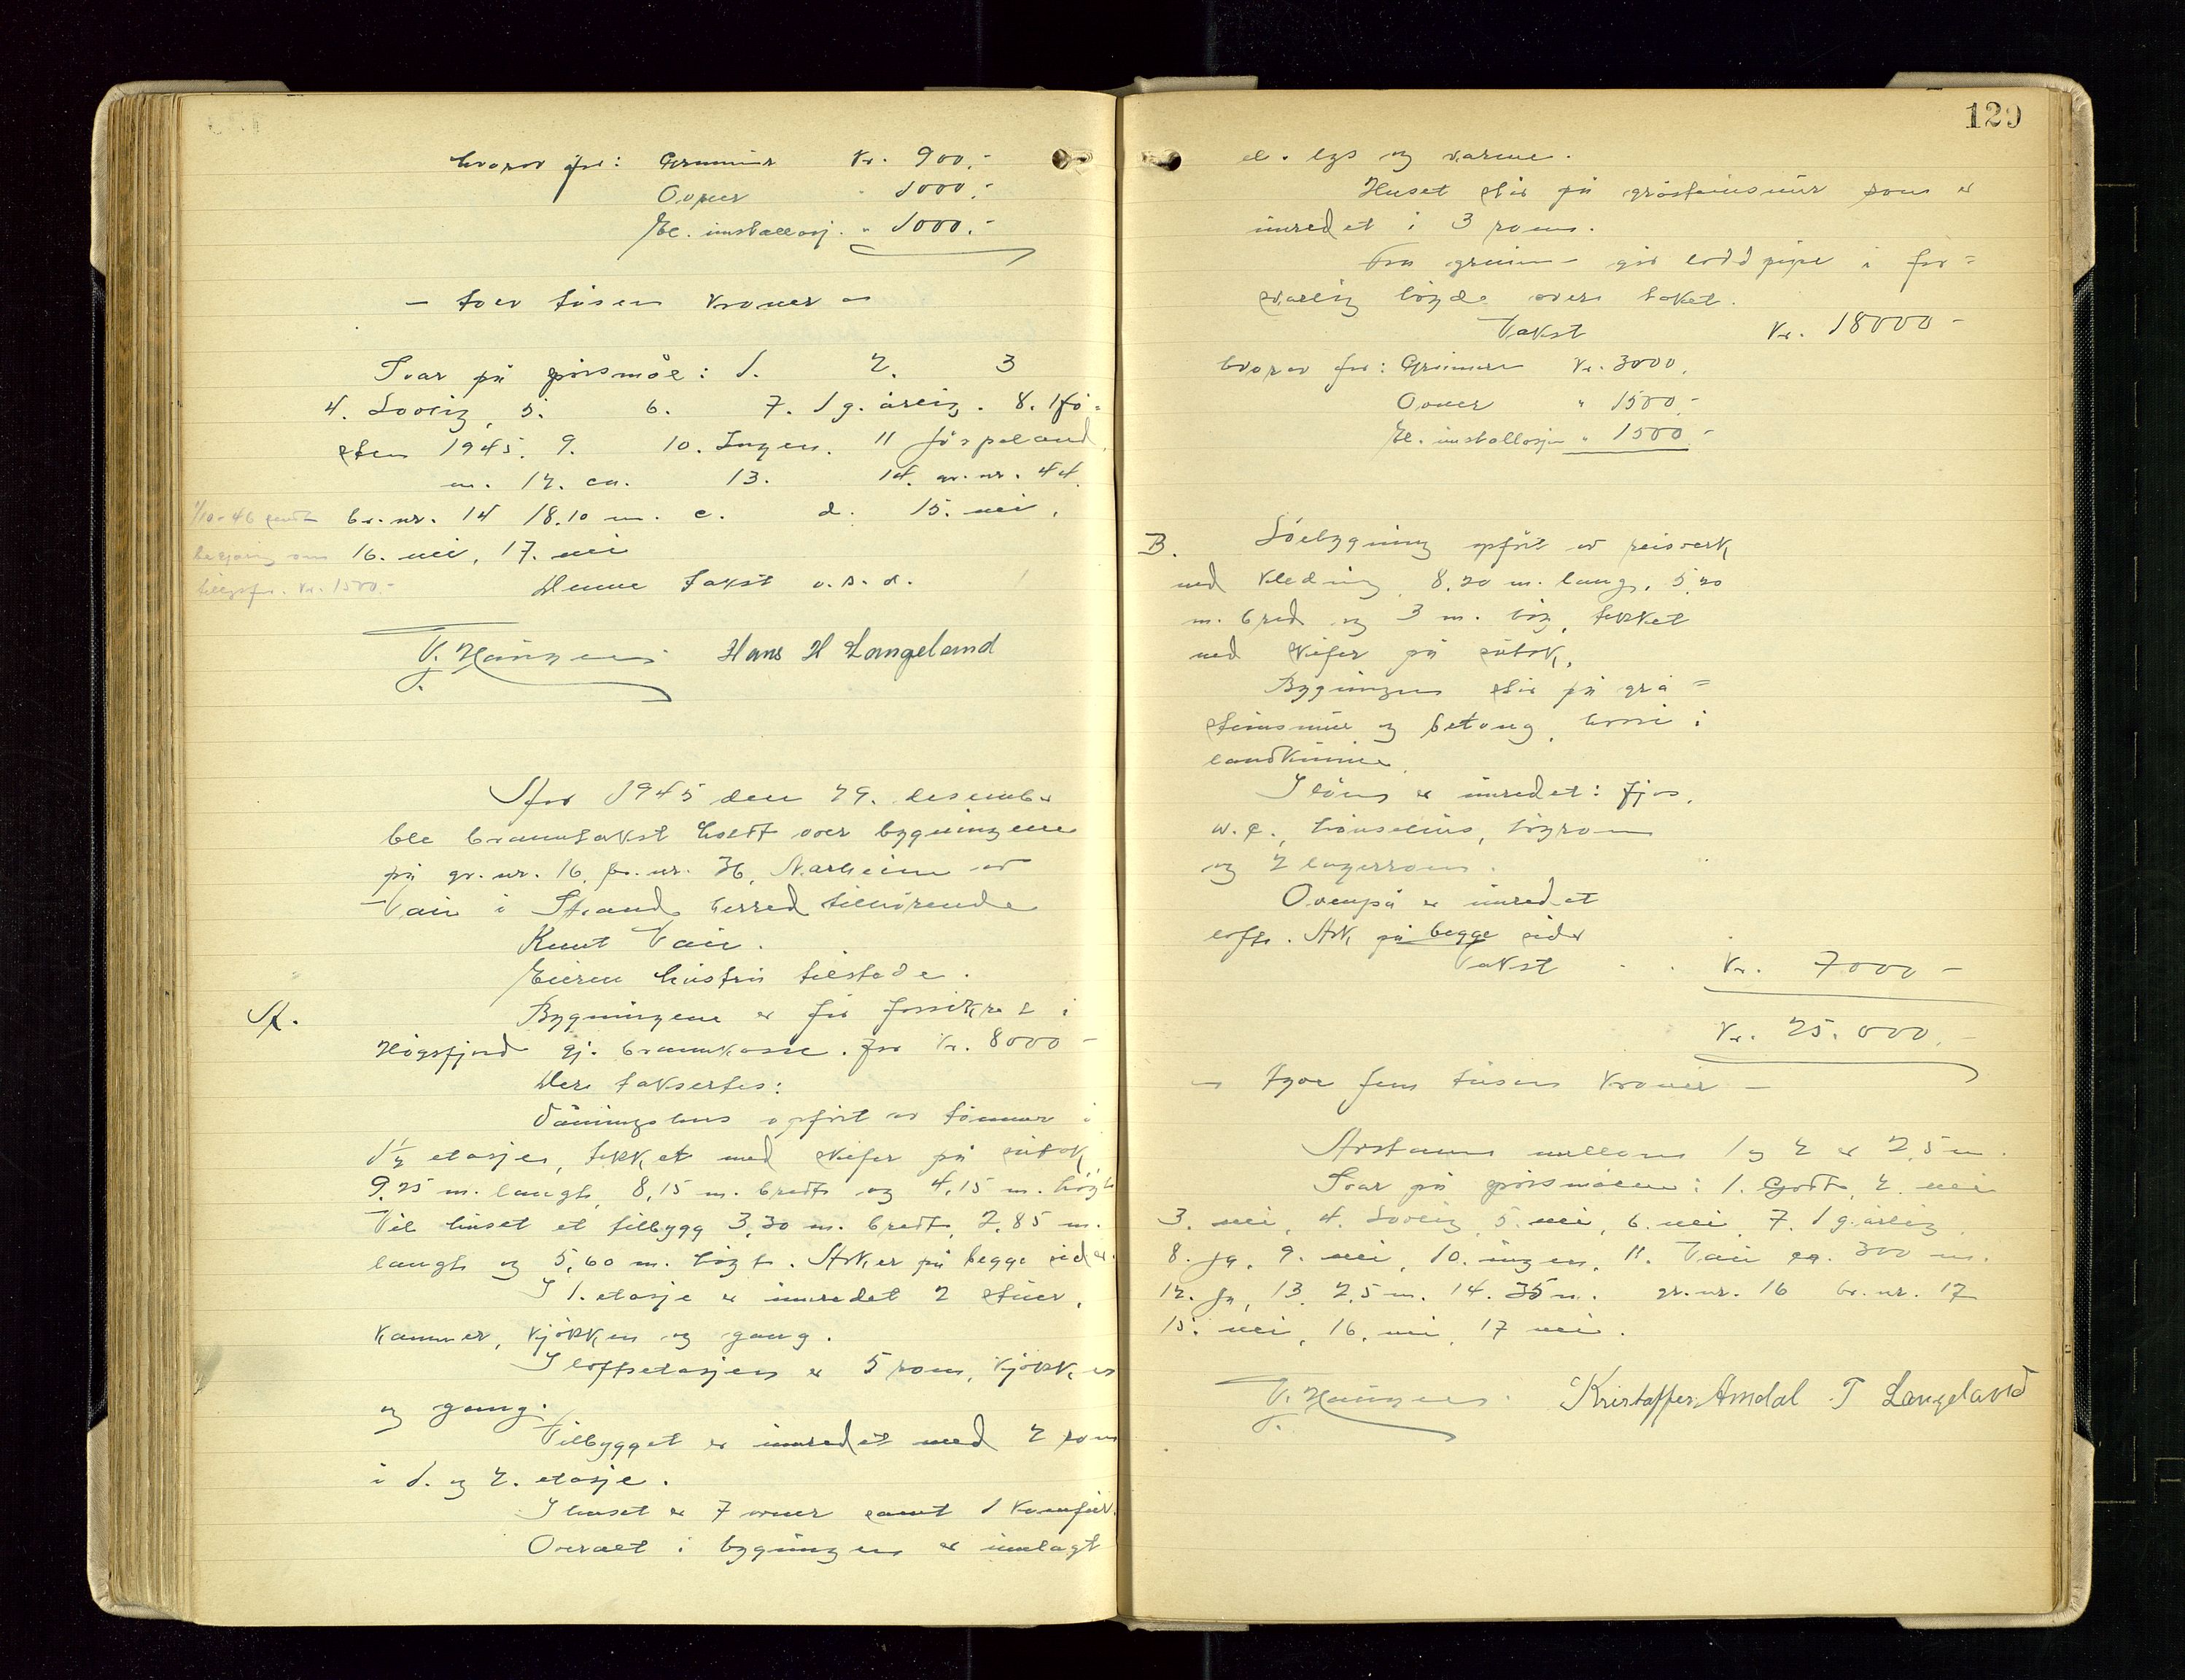 hvorav for: Grunmur Kr. 900.-
Ovner " 1000.-
El. installasj. " 1000.-
- tolv tusen kroner -
Svar på spörsmål: 1. 2. 3
4. Lovlig, 5. 6. 7. 1 g. årlig. 8. 1 hö=
sten 1945. 9. 10. Ingen. 11 Jörpeland
m. 12. ca. 13. 14. gr. nr. 44.
br. nr. 14 18.10 m. c. d. 15. nei,
1/10-46 sendt
begjæring om
tilleggsfor. kr. 1500.-
16. nei, 17. nei
Denne takst v. s. d.
T. Haugen Hans H Langeland
År 1945 den 29. desember
ble branntakst holdt over bygningene
på gr. nr. 16, br. nr. 36, Narheim av
Tau i Strand herred tilhörende
Knut Tau.
Eieren hustru tilstede.
A. Bygningene er för forsikret i
Högsfjord gj. brannkasse. for kr. 8000-
Der taksertes:
Våningshus opfört av tömmer i
1½ etasjer, tekket med skifer på sutak,
9,25 m. langt, 8,15 m. bredt og 4,15 m. högt
Til huset et tilbygg 3,30 m. bredt, 2,85 m.
langt og 5,60 m. högt. Arker på begge sider.
I 1. etasje er innredet 2 stuer,
kammer, kjökken og gang.
I loftsetasjen er 5 rom, kjökken
og gang.
Tilbygget er innredet med 2 rom
i 1. og 2. etasje.
I huset er 7 ovner samt 1 komfur.
Overalt i bygningen er innlagt
129
el. lys og varme.
Huset står på gråsteinsmur som er
innredet i 3 rom.
Fra grunnen går loddpipe i for=
svarlig höyde over taket.
Takst Kr. 18000-
hvorav for: Grunmur Kr. 3000.
Ovner " 1500.-
El. installasjon " 1500.-
B. Löebygning opfört av reisverk
med kledning 8.20 m. lang, 5,20
m. bred og 3 m. höy, tekket
med skifer på sutak.
Bygningen står på grå=
steinsmur og betong, hvori i
landkummer.
I löen er innredet: fjös,
w.c., hönsehus, höyrom
og 2 lagerrom.
Ovenpå er innredet
loft. Ark på begge sider
Takst . . Kr. 7000-
Kr. 25.000.-
- tyve fem tusen kroner -
Avstanden mellom 1 og 2 er 2,5 m.
Svar på spörsmålene: 1. Godt, 2. nei
3. nei, 4. Lovlig 5. nei, 6. nei 7. 1 g. årlig
8. ja, 9. nei, 10. ingen, 11. Tau ca. 300 m.
12. ja, 13. 2,5 m. 14. 35 m. gr. nr. 16 br. nr. 17
15. nei, 16. nei, 17 nei.
T. Haugen. Kristoffer Amdal T Langeland